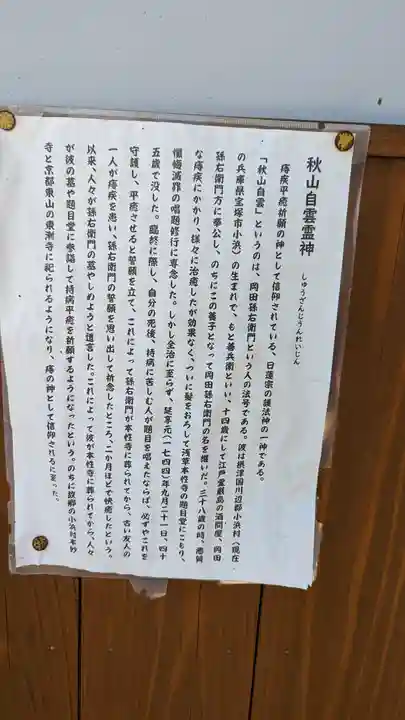 秋山自雲霊神
しゅうざんじうんれいじん
痔疾平癒祈願の神として信仰されている、日蓮宗の護法神の一神である。
「秋山自雲」というのは、岡田孫右衛門という人の法号である。彼は摂津国川辺郡小浜村(現在
の兵庫県宝塚市小浜)の生まれで、もと善兵衛といい、十四歳にして江戸霊厳島の酒問屋、岡田
孫右衛門方に奉公し、のちにこの養子となって岡田孫右衛門の名を継いだ。三十八歳の時、悪質
な痔疾にかかり、様々に治癒したが効果なく、ついに髪をおろして浅草本性寺の題目堂にこもり、
懺悔滅罪の唱題修行に専念した。しかし全治に至らず、延享元(一七四四)年九月二十一日、四十
五歳で没した。臨終に際し、自分の死後、持病に苦しむ人が題目を唱えたならば、必ずやこれを
守護し、平癒させると誓願を立て、これによって孫右衛門が本性寺に葬られてから、古い友人の
一人が痔疾を患い、孫右衛門の誓願を思い出して祈念したところ、二か月ほどで快癒したという。
以来、人々が孫右衛門の墓やしめようと遺言した。これによって彼が本性寺に葬られてから、人々
が彼の墓や題目堂に参詣して持病平癒を祈願するようになったという。のちに故郷の小浜村本妙
寺と京都東山の東漸寺に祀られるようになり、痔の神として信仰されるに至った。